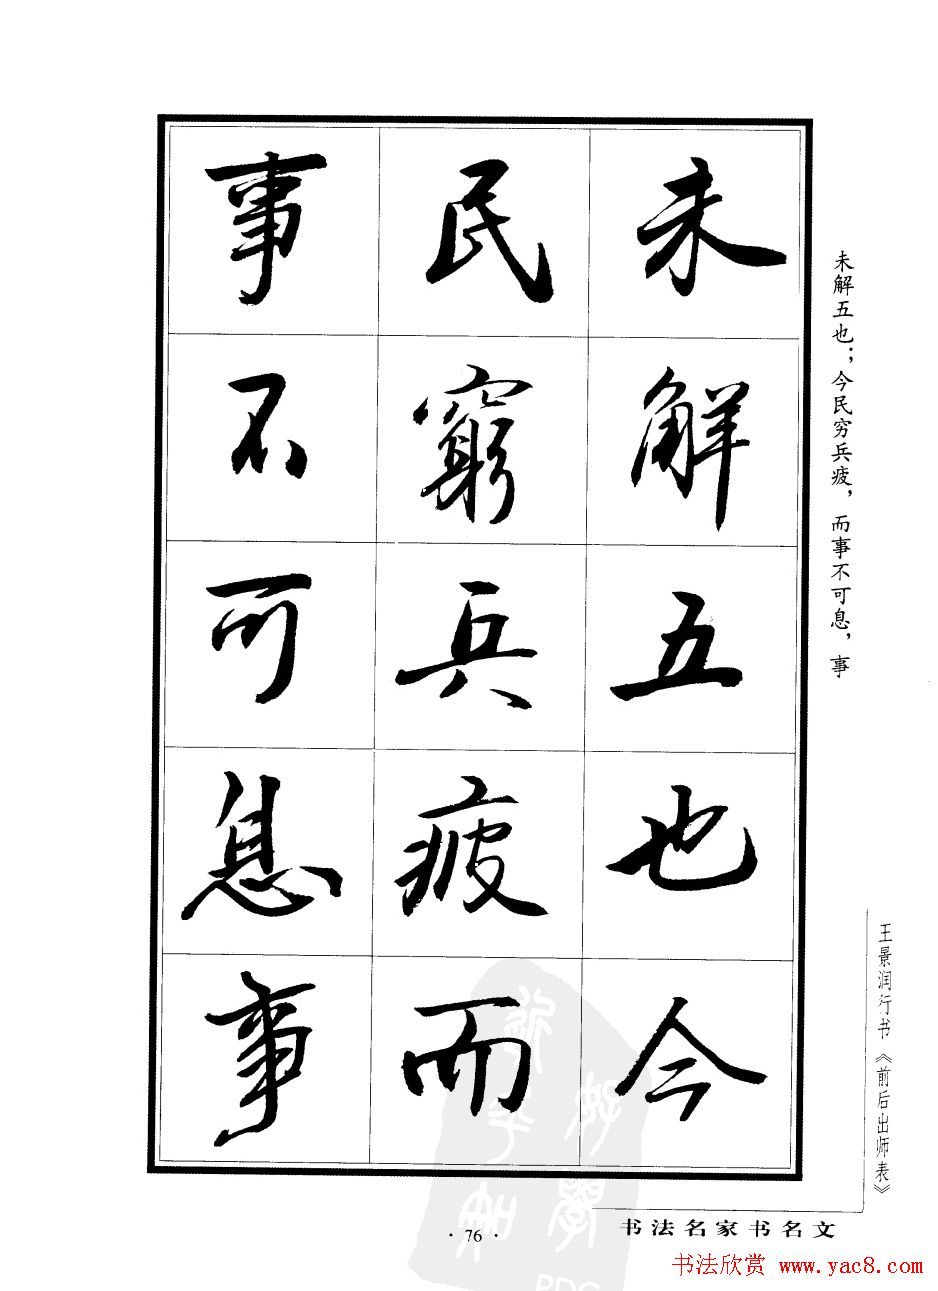 未解五也今
民窮兵疲而
事不可息事
未解五也；今民穷兵疲，而事不可息，事
王景润行书《前后出师表》
· 76 ·
书法名家书名文
书法欣赏 www.yac8.com